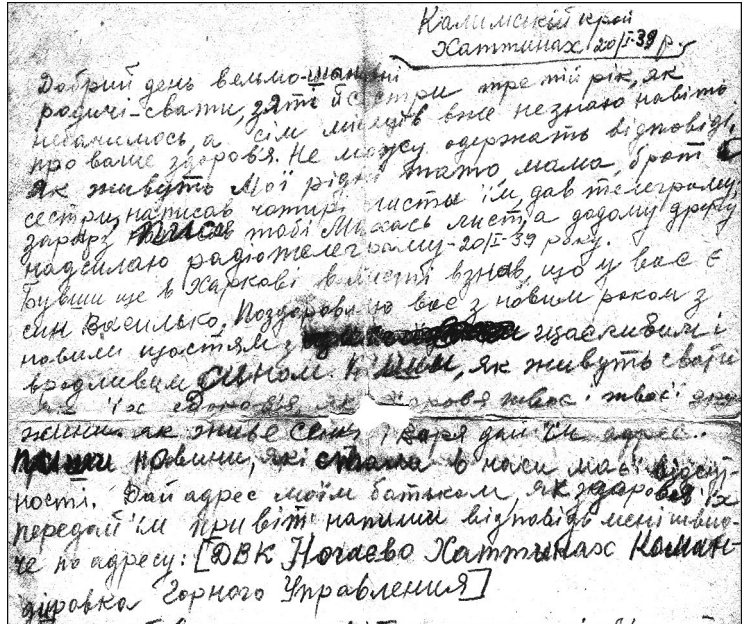 Калимскій край
Хаттинах 20/I-39 р
Добрий день вельмо-шановні
родичі-свати, зяті й сестри третій рік, як
небачимось, а сім місяців вже незнаю навіть
про ваше здоровя. Не можу одержать відповіді,
Як живуть Мої рідні тато, мама, брат і
сестри, написав чотирі листы їм, дав телеграму,
зараз тобі Михась лист, а додому другу
надсилаю радіотелеграму-20/I-39 року.
Бувши ще в Харкові в листі взнав, що у вас є
син Василько, Поздоровляю вас з новим роком з
новим щастям, щасливим і
вродливим сином. Пиши, як живуть свати
як їх здоровя як здоровя твоє і твоєї дру
жини. як живе дай їм адрес.
новини, які в наси має відсут-
ности. Дай адрес моїм батьком, як здоровя їх
передай їм привіт напиши відповідь мені швид-
че по адресу: [ДВК Ногаево Хаттинах Коман-
діровка Горного Управления]